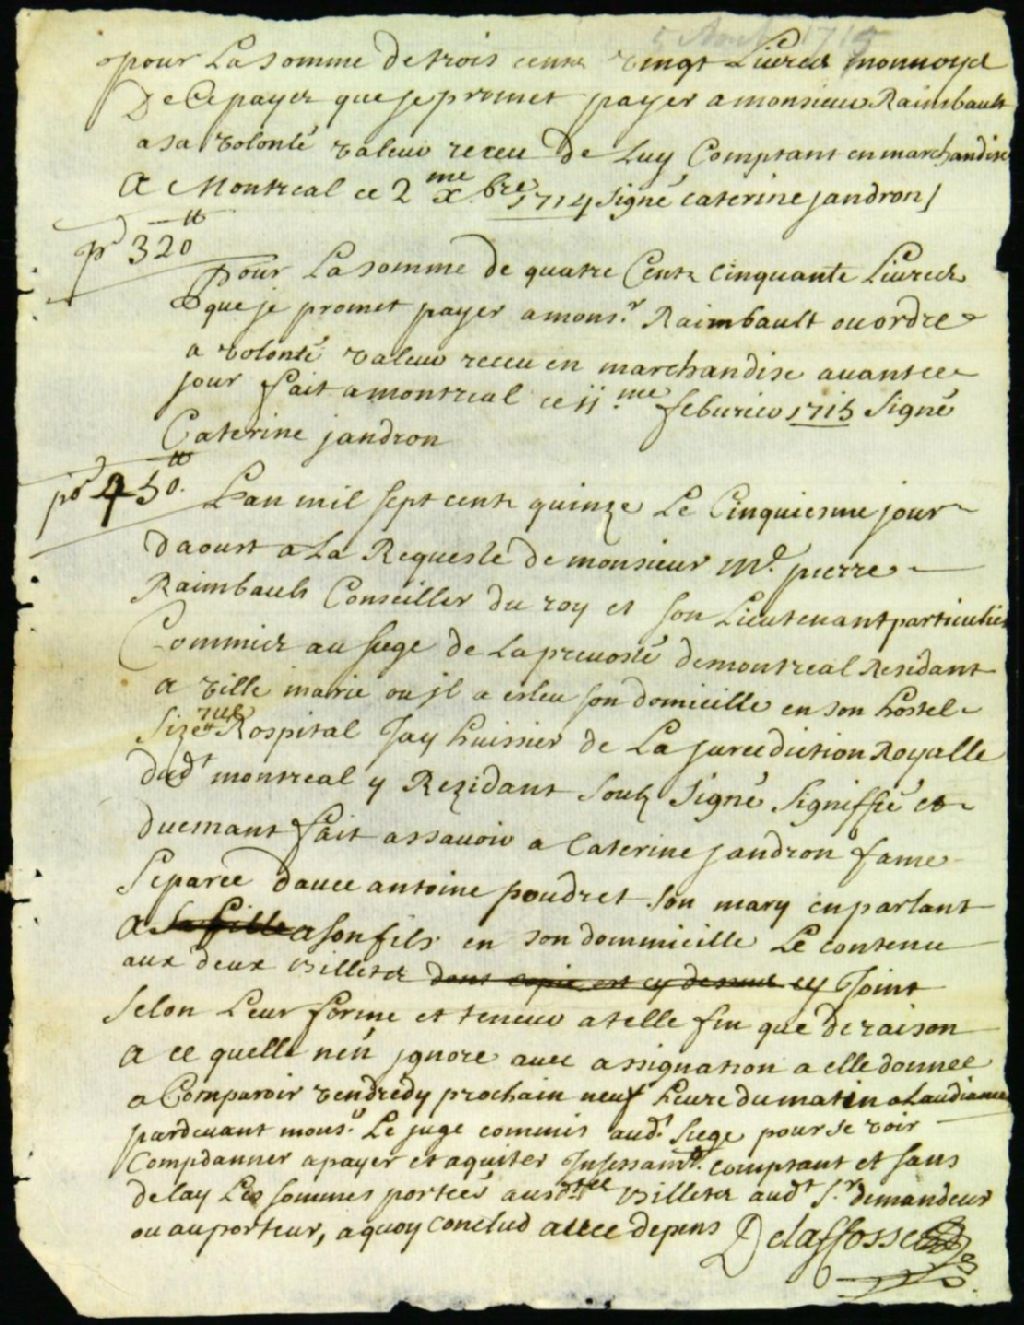 5 Aout 1715
pour La somme de trois cents vingt Livres monnoye
De Ce payer que je promet payer a monsieur Raimbault
a sa volonté valeur receu de Luy Comptant en marchandise
A Montreal ce 2me xbre 1714 signé caterine jandron /
pr 320tt
Pour La somme de quatre Cents Cinquante Livres
que je promet payer a monsr. Raimbault ou ordre
a volonté valeur receu en marchandise auant ce
jour fait a montreal ce 11.me feburier 1715 Signé
Caterine jandron
pr 450tt.
Lan mil sept cents quinze Le Cinquiesme jour
daoust a La Requeste de monsieur Me. pierre
Raimbault Conseiller du roy et son Lieutenant particulier
Commis au siege de La preuosté de montreal Residant
a ville marie ou jl a esleu son domicille en son hostel
size rue Lospital Jay huissier de La jurediction Royalle
dudt montreal y Rezidant soubz signé signiffié et
duemant fait assauoir a Caterine jandron fame
separée dauec antoine poudret son mary en parlant
A sa fille a son fils en son dommicille Le contenu
aux deux billets dont copie est cy dessus cy Joint
selon Leur forme et teneur a telle fin que de raison
A ce quelle nén jgnore auec assignation a elle donnee
a Comparoir vendredy prochain neuf heure du matin a Laudiance
pardeuant monsr. Le juge commis audt. siege pour se voir
Compdanner a payer et aquiter Insessamt. comptant et sans
delay Les sommes portées ausdts billets audt sr. demandeur
ou au porteur, a quoy conclud auec depens Delafosse